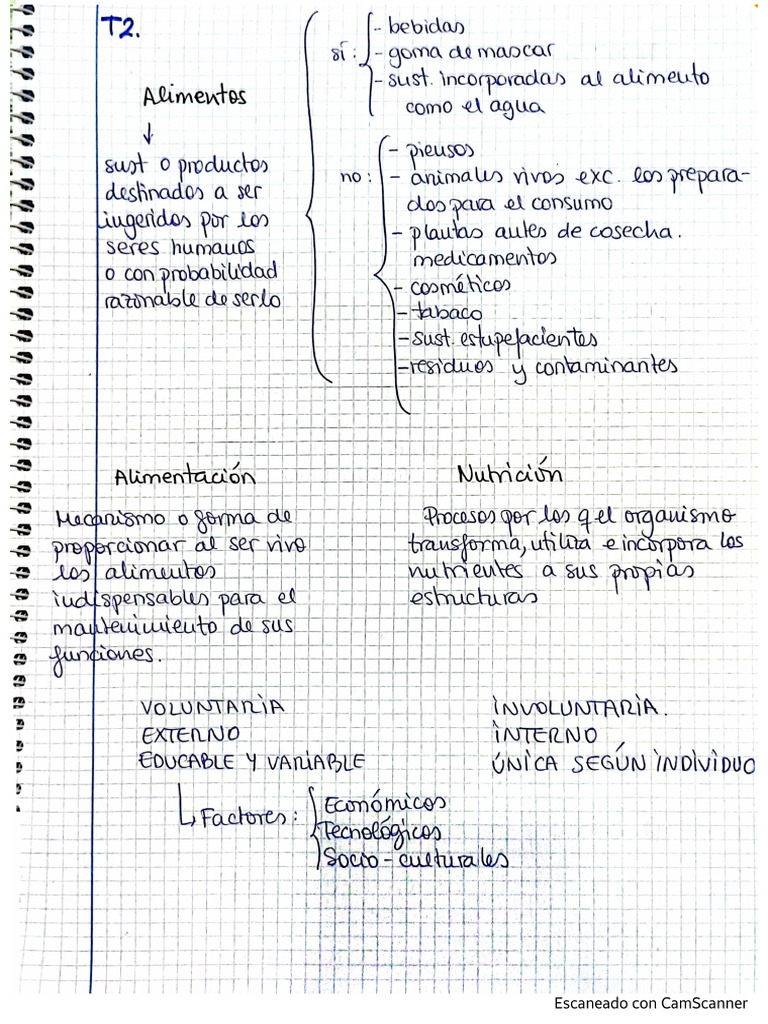 T2.
Alimentos
↓
sust o productos
destinados a ser
ingeridos por los
seres humanos
o con probabilidad
razonable de serlo
sí:
- bebidas
- goma de mascar
- sust. incorporadas al alimento
como el agua
no:
- piensos
- animales vivos exc. los prepara-
dos para el consumo
- plantas antes de cosecha.
medicamentos
- cosméticos
- tabaco
- sust. estupefacientes
- residuos y contaminantes
Alimentación
Mecanismo o forma de
proporcionar al ser vivo
los alimentos
indispensables para el
mantenimiento de sus
funciones.
VOLUNTARIA
EXTERNO
EDUCABLE Y VARIABLE
↳ Factores:
Económicos
Tecnológicos
Socio-culturales
Nutrición
Procesos por los q el organismo
transforma, utiliza e incorpora los
nutrientes a sus propias
estructuras
INVOLUNTARIA.
INTERNO
ÚNICA SEGÚN INDIVIDUO
Escaneado con CamScanner